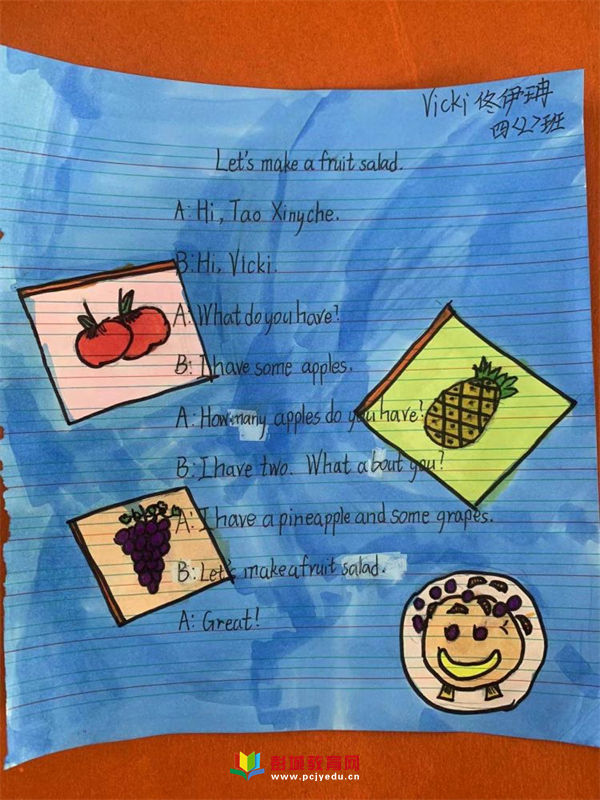 Vicki 佟伊珃
四<2>班
Let's make a fruit salad.
A: Hi, Tao Xinyche.
B: Hi, Vicki.
A: What do you have?
B: I have some apples.
A: How many apples do you have?
B: I have two. What about you?
A: I have a pineapple and some grapes.
B: Let's make a fruit salad.
A: Great!
彭城教育网
www.pcjyedu.cn